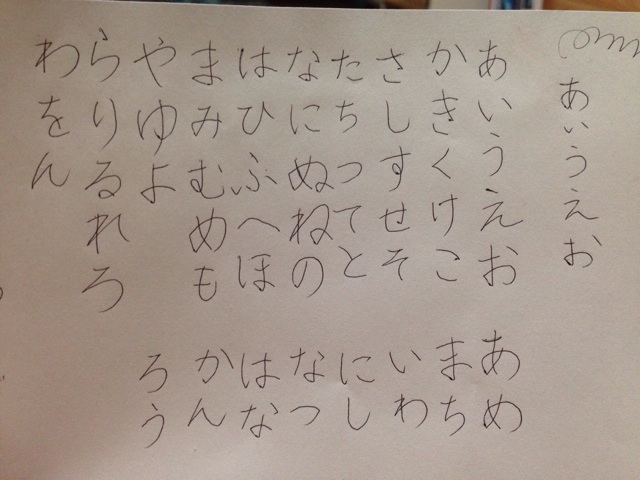 あいうえお
あいうえお
かきくけこ
さしすせそ
たちつてと
なにぬねの
はひふへほ
まみむめも
やゆよ
らりるれろ
わをん
あめ
まち
いわ
にし
なつ
はな
かん
ろう